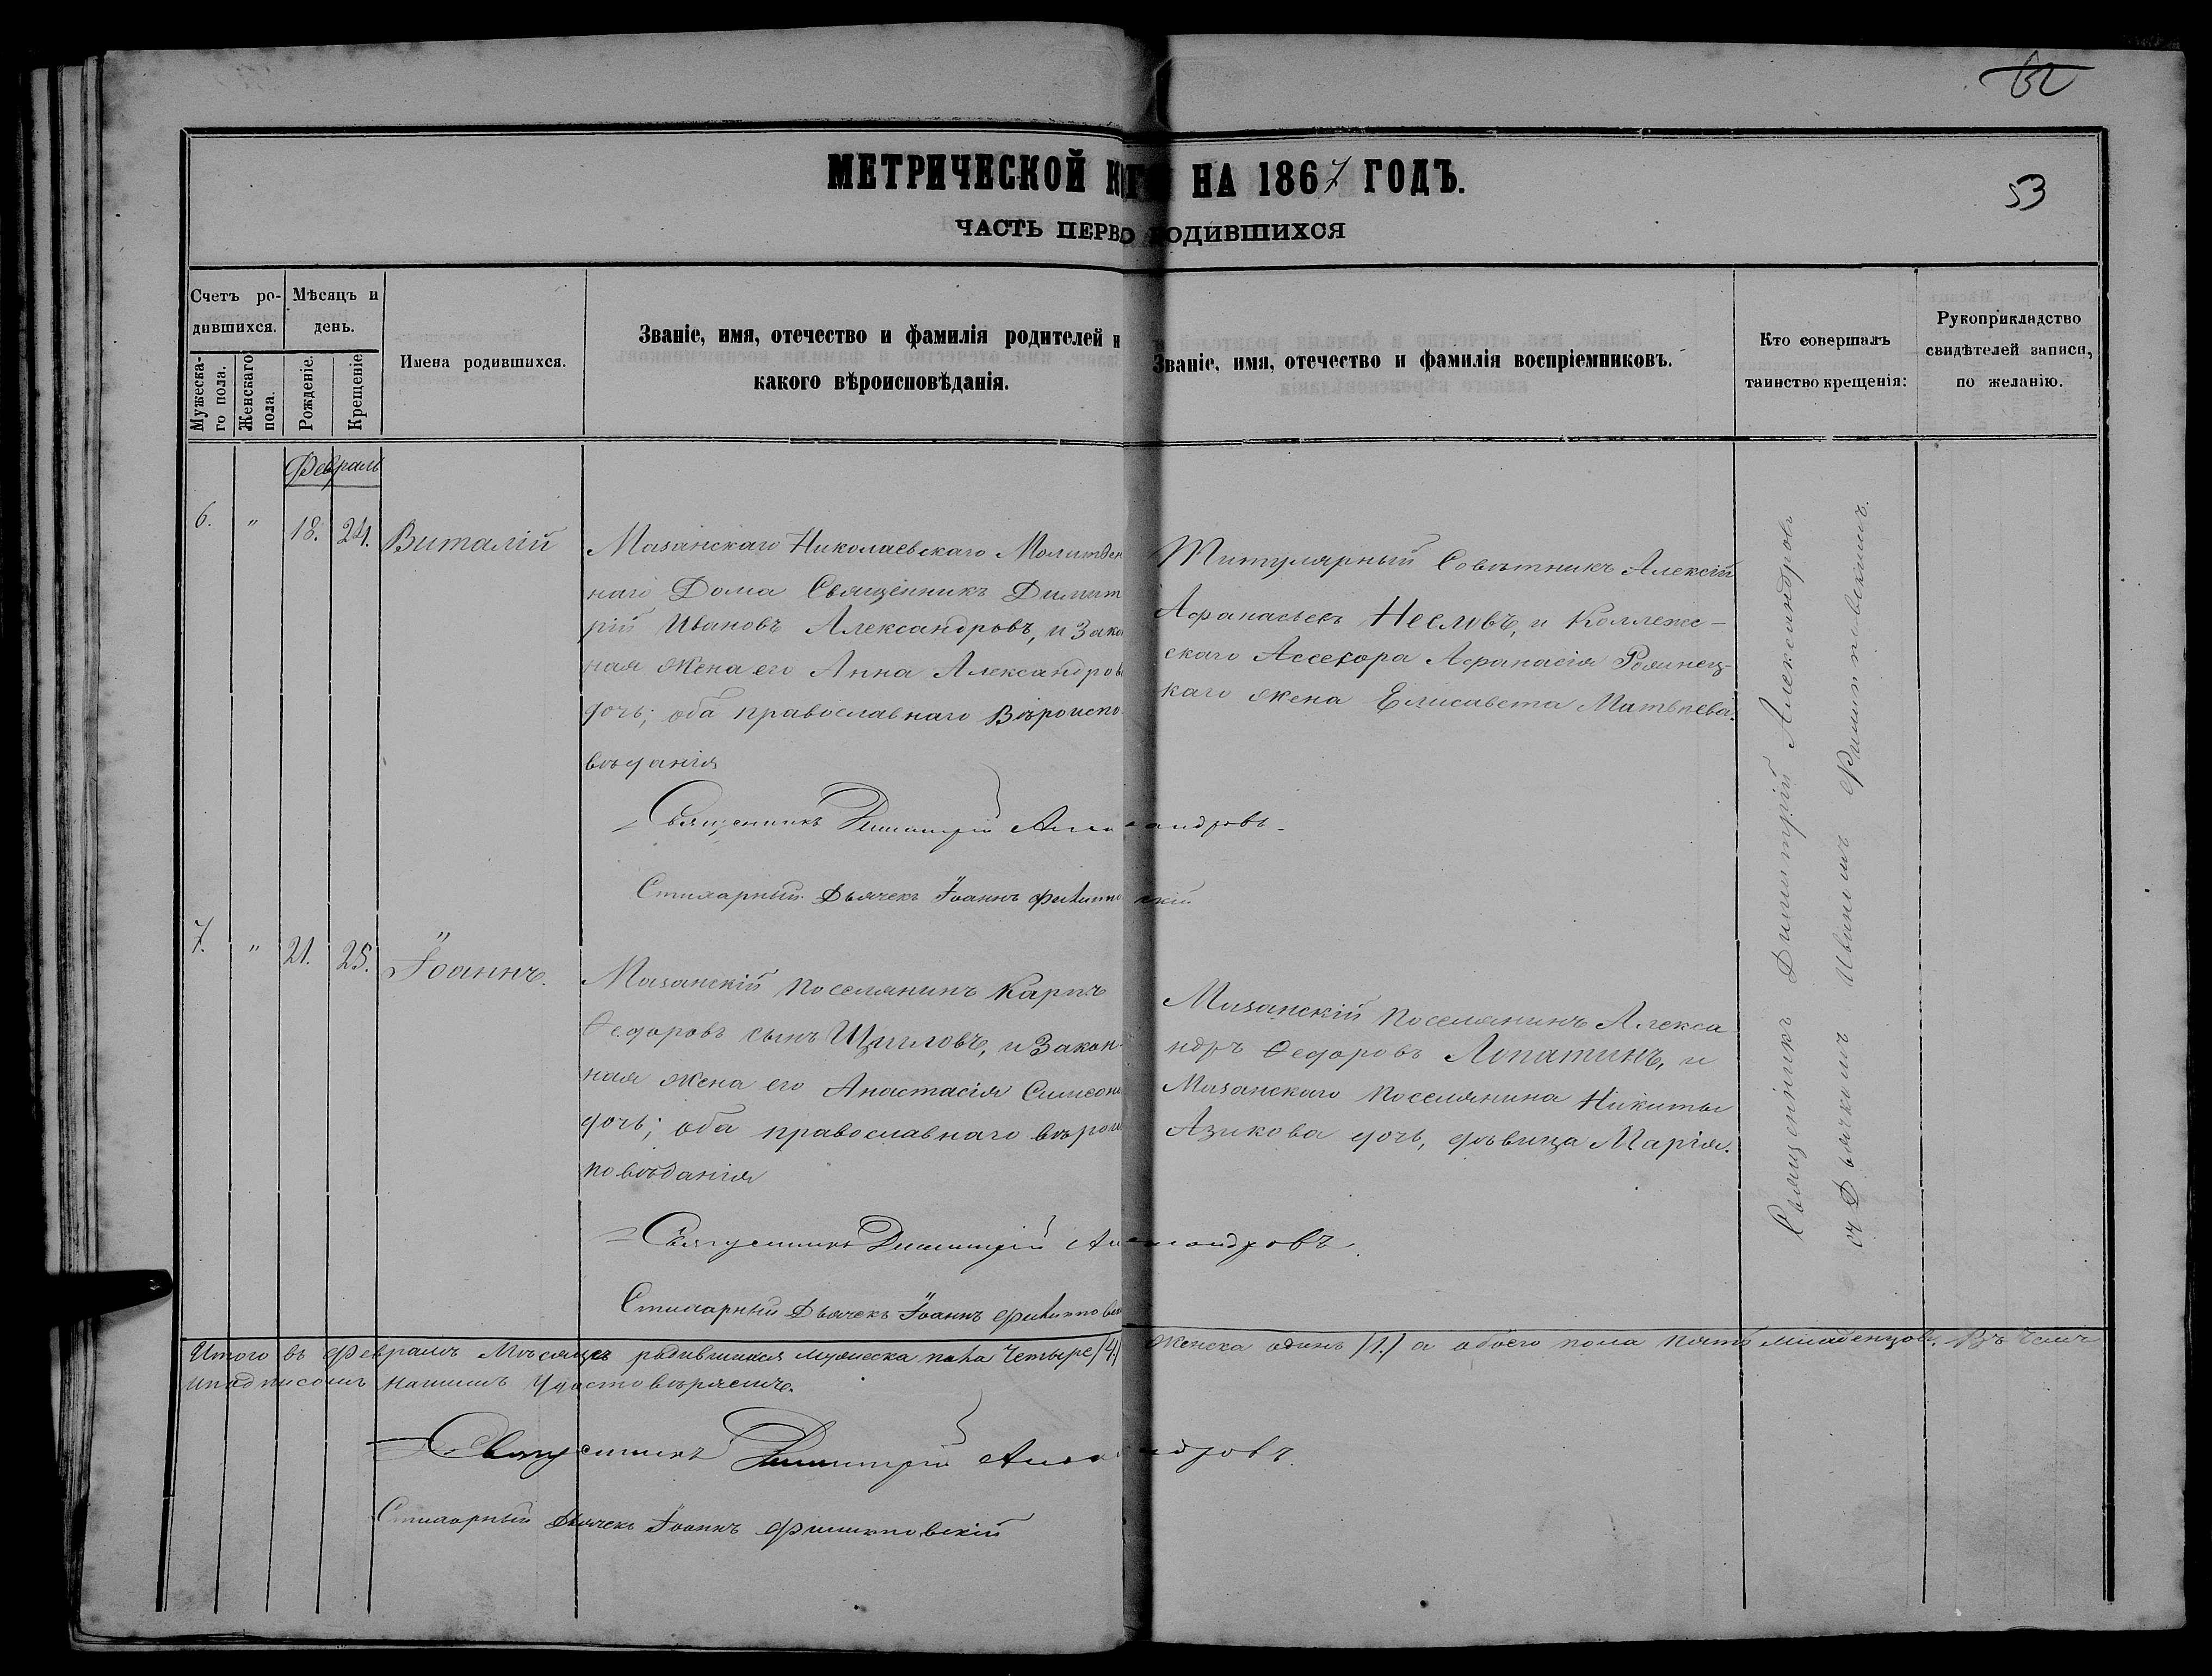 62
МЕТРИЧЕСКОЙ К Г НА 1867 ГОДЪ.
53
ЧАСТЬ ПЕРВО РОДИВШИХСЯ
Счетъ ро-
дившихся.
Мужеска-
го пола.
Женскаго
пола.
Мѣсяцъ и
день.
Рожденіе.
Крещеніе
Имена родившихся.
Званіе, имя, отечество и фамилія родителей и
какого вѣроисповѣданія.
Званіе, имя, отечество и фамилія воспріемниковъ.
Кто совершалъ
таинство крещенія:
Рукоприкладство
свидѣтелей записи,
по желанію.
Февраль
6. " 18. 24. Виталій
Мазанскаго Николаевскаго Молитвен
наго Дома Священникъ Димит
рій Ивановъ Александровъ, и Зако
ная жена его Анна Александров
дочь; оба православнаго Вѣроиспо-
вѣданія
Священникъ Димитрій Александровъ.
Стихарный Дьячекъ Іоаннъ Филипповскій
Титулярный Совѣтникъ Алексій
Афанасьевъ и Коллеж-
скаго Ассесора Афанасія
каго жена Елисавета Матвѣева.
7. " 21. 25. Іоаннъ.
Мазанскій Поселянинъ Карпъ
Ѳедоровъ сынъ и Закон-
ная жена его Анастасія Симеон
дочь; оба православнаго вѣрои
повѣданія
Священникъ Димитрій Александровъ.
Стихарный Дьячекъ Іоаннъ Филиппов
Мазанскій Поселянинъ Алекса-
ндръ Ѳедоровъ Лопатинъ, и
Мазанскаго Поселянина Никиты
Азикова дочь, дѣвица Марія.
Священникъ Димитрій Александровъ
съ Дьячкомъ Иваномъ Филипповскимъ.
Итого въ Февралѣ Мѣсяцѣ родившихся мужеска пола Четыре /4/ Женска одинъ /1./ а обоего пола пять младенцовъ. Въ чемъ
и подписомъ нашимъ Удостовѣряемъ.
Священникъ Димитрій Александровъ.
Стихарный Дьячекъ Іоаннъ Филипповскій